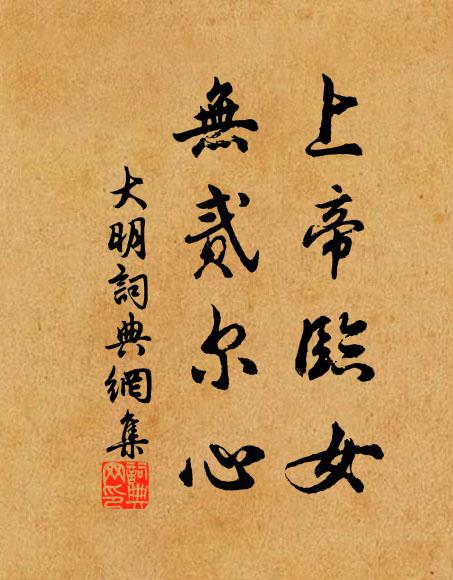 上帝臨女
無貳尔心
大明詞典網集
詞典網印